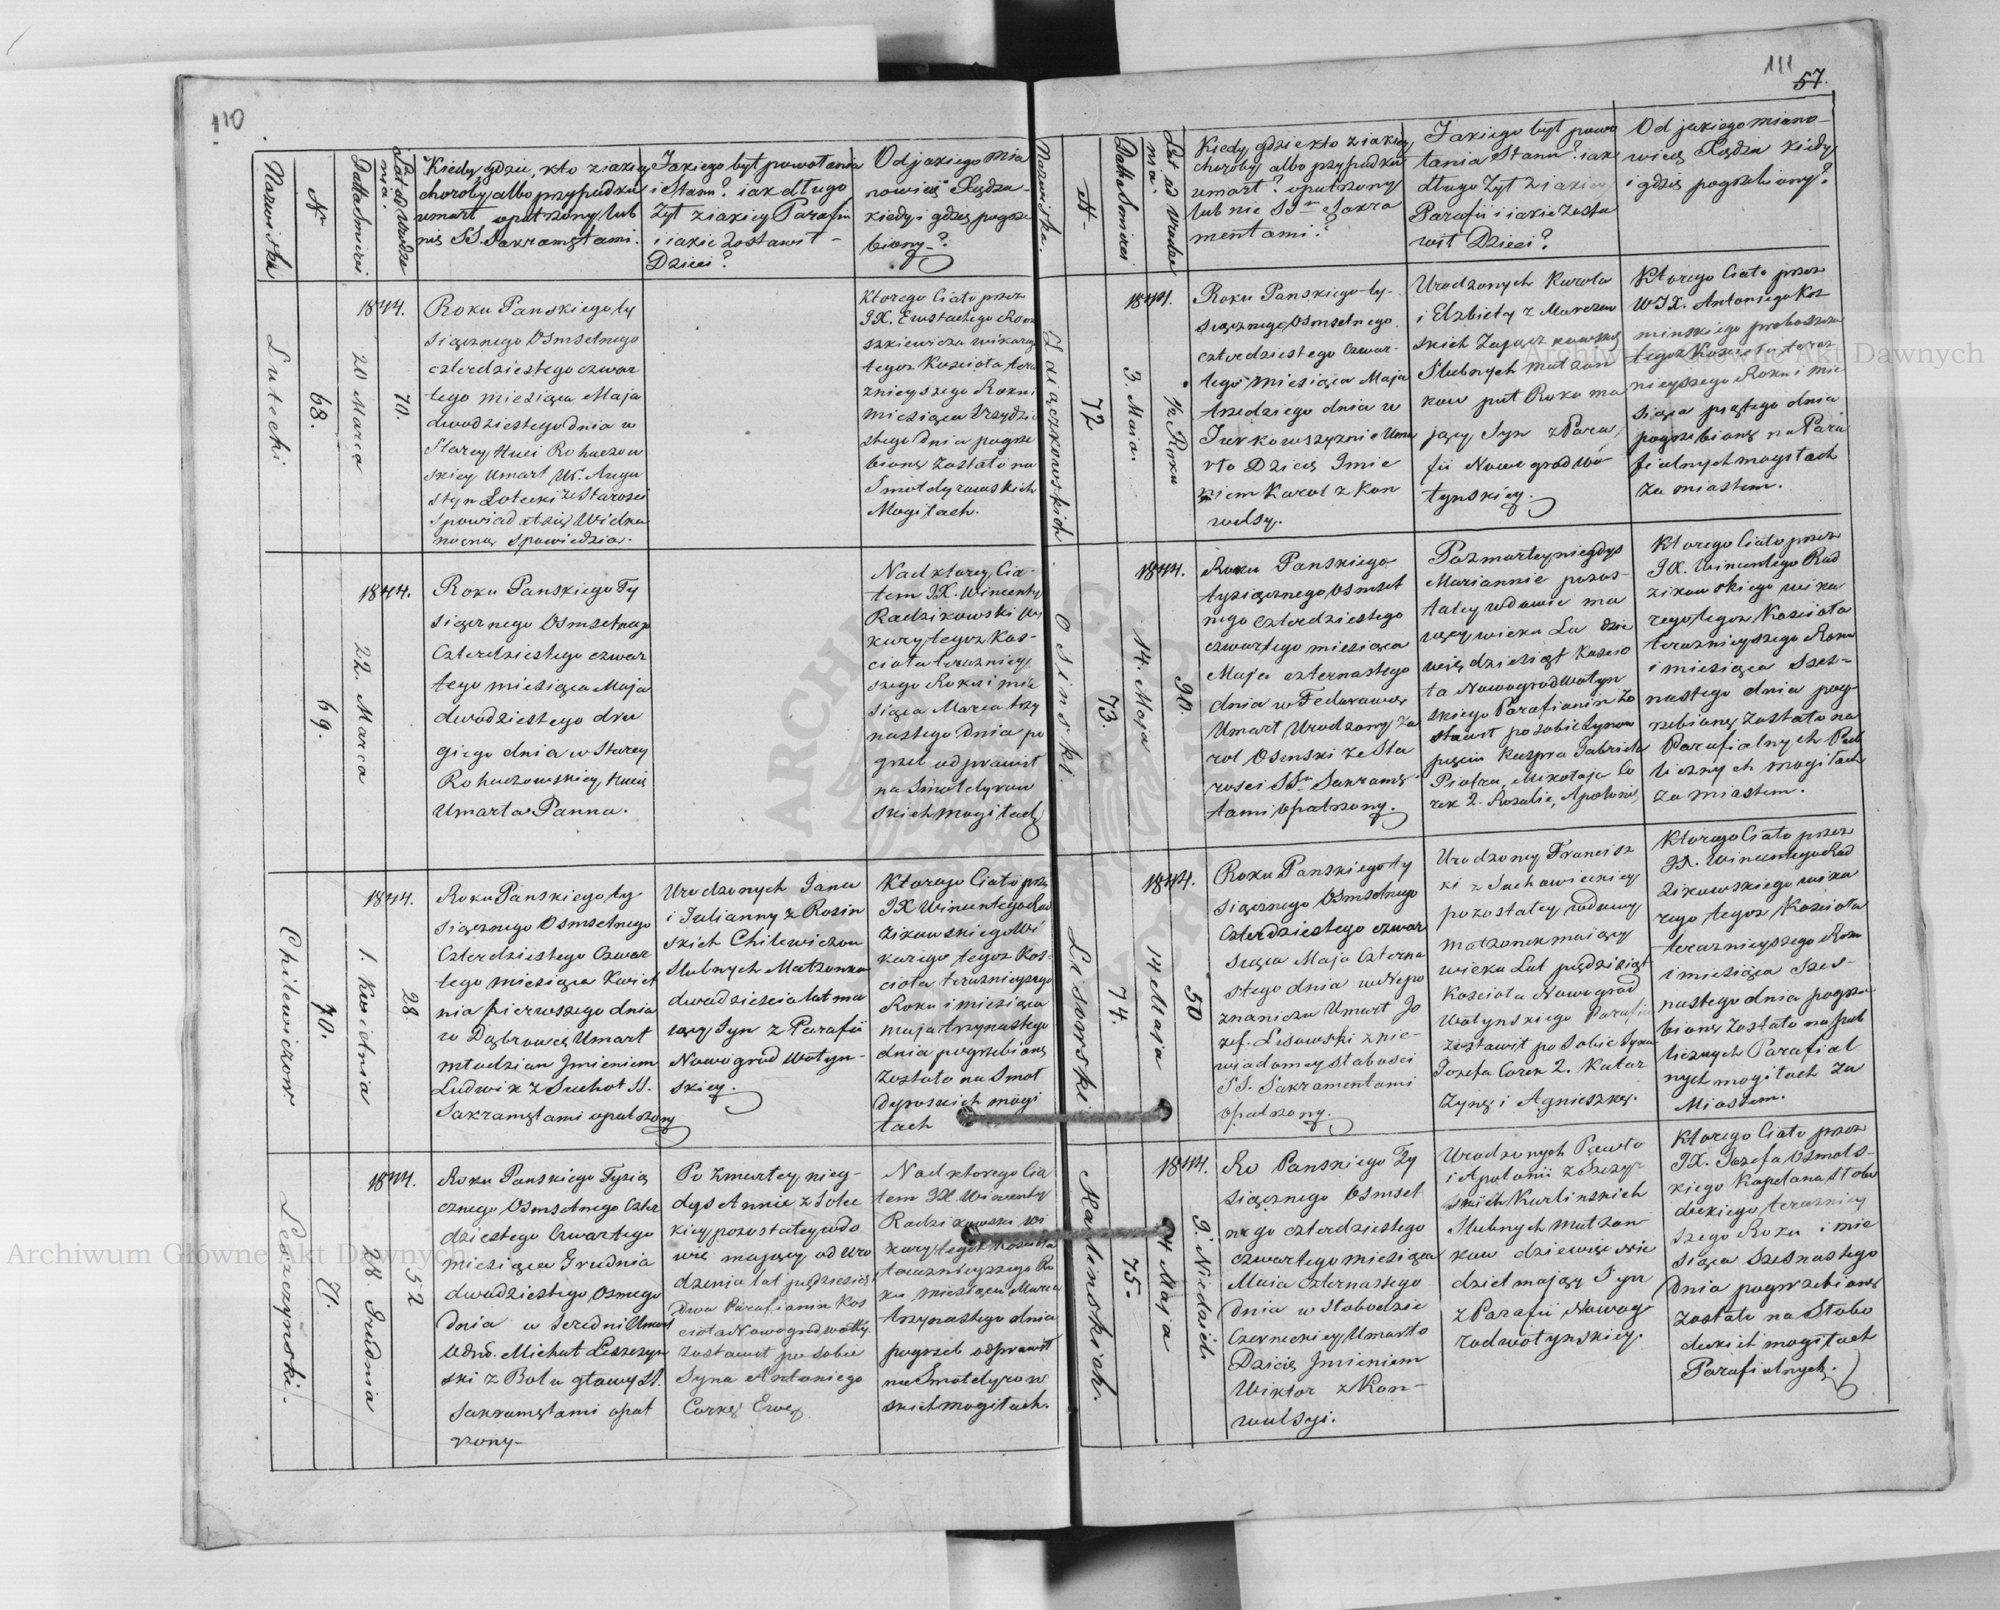 110
Nazwiska
N
Datta Smierci
Lat od Urodze
nia.
Kiedy, gdzie, kto z iakiey
choroby albo przypadku
umarł opatrzony lub
nie SS. Sakramętami.
Jakiego był powołania
i Stanu? iak długo
Zył z iakiey Parafii
i iakie Zostawił
Dzieci?
Od jakiego mia
nowicie Xiędza
kiedy i gdzie pogrze
biony?
Lutecki
68.
1844.
20 Marca
70.
Roku Panskiego ty
siącznego Osmsetnego
czterdziestego czwar
tego miesiąca Maja
dwudziestego dnia w
Starey Huci Rohaczow
skiey Umarł Ur. Augu
styn Lotecki ze Starosci
Spowiadał się Wielka
nocną Spowiedzią.
Ktorego Ciało przez
JX. Eustachego Rom
szkiewicza wikarego
tegoż Kościoła tera
znieyszego Roku i
miesiąca trzydzie
stego dnia pogrze
bione zostało na
Smołdyrowskich
Mogiłach.
69.
1844.
22. Marca
Roku Panskiego Ty
siącznego Osmsetnego
Czterdziestego czwar
tego miesiąca Maja
dwudziestego dru
giego dnia w Starey
Rohaczowskiey Hucie
Umarła Panna.
Nad ktorey Cia
łem JX. Wincenty
Radzikowski wi
kary tegoż Kos-
cioła terazniey
szego Roku i mie
siąca Marca trzy
nastego dnia po
grzeb odprawił
na Smołdyrow
skich mogiłach
Chilewiczow
70.
1844.
1. Kwietnia
28.
Roku Panskiego ty
siącznego Osmsetnego
Czterdziestego Czwar
tego miesiąca Kwiet
nia pierwszego dnia
w Dąbrowie Umarł
młodzian Jmieniem
Ludwik z Suchot SS.
Sakramętami opatrzony
Urodzonych Jana
i Julianny z Rosin
skich Chilewiczow
slubnych Małzonkow
dwadziescia lat ma
iący Syn z Parafii
Nowogrod Wołyn-
skiey.
Ktorego Ciało prze
JX Wincentego Rad
zikowskiego Wi
karego tegoż Kos-
cioła teraznieyszego
Roku i miesiąca
maja trzynastego
dnia pogrzebione
zostało na Smoł
dyroskich mogi
łach
Leszczynski.
71.
1844.
28 Grudnia
52
Roku Panskiego Tysią
cznego Osmsetnego Czter
dziestego Czwartego
miesiąca Grudnia
dwudziestego osmego
dnia w Seredni Umarł
Urdo. Michał Leszczyn
ski z Bolu głowy SS.
Sakramętami opat
rzony
Po Zmarłey nieg-
dys Annie z Sołec
kiey pozostałey wdo
wie mający od Uro
dzenia lat pięcdziesiąt
Dwa Parafianin Kos
cioła Nowogrodwołły.
zostawił po sobie
Syna Antoniego
Corkę Ewę
Nad ktorego Cia
łem JX. Wincenty
Radzikowski wi
kary tegoż Koscioła
teraznieyszego Ro
ku miesiąca Marca
trzynastego dnia
pogrzeb odprawił
na Smołdyrow
skich mogiłach.
111
57.
Nazwiska.
N
Datta Smierci
Lat od Urodze
nia.
Kiedy, gdzie kto z iakiey
choroby albo przypadku
umarł? opatrzony
lub nie SSmi Sakra
mentami?
Jakiego był powo
łania Stanu? iak
długo Zył z iakiey
Parafii i iakie Zosta
wił Dzieci?
Od jakiego miano-
wicie Xiędza kiedy
i gdzie pogrzebiony?
Zdiączkowskich
72
1844.
3. Maia.
1/2 Roku
Roku Panskiego ty-
siącznego Osmsetnego
czterdziestego czwar-
tego miesiąca Maja
trzedziego dnia w
Jurkowszyznie Uma
rło Dziecię Jmie
niem Karol z Kon
wulsy.
Urodzonych Karola
i Elzbiety z Murczow
skich Zajączkowskich
Slubnych małzon
kow puł Roku ma
jący Syn z Para
fii Nowogrod Wo-
łynskiey.
Ktorego Ciało przez
WJX. Antoniego Koz
minskiego proboszcza
tegoz Koscioła teraz
nieyszego Roku i mie
siąca piątego dnia
pogrzebione na Para
fialnych mogiłach
za miastem.
Osinski.
73.
1844.
14. Maja
90.
Roku Panskiego
tysiącznego Osmset
nego czterdziestego
czwartego miesiąca
Maja czternastego
dnia w Fedorowce
Umarł Urodzony Ka
rol Osinski ze Sta
rosci SSmi Sakramę
tami Opatrzony.
Po zmarłey niegdys
Mariannie pozos-
tałey wdowie ma
iący wieku Lat dzie
więdziesiąt Koscio
ła Nowogrodwołyn
skiego Parafianin Zo
stawił po sobie Synow
pięciu Kaspra Gabriela
Piotra, Mikołaja Co
rek 2. Rozalię, Apolonię,
Ktorego Ciało przez
JX. Wincentego Rad
zikowskiego wika
rego tegoz Koscioła
teraznieyszego Roku
i miesiąca szes-
nastego dnia pog-
rzebione zostało na
Parafialnych Pub
licznych mogiłach
za miastem.
Lisowski
74.
1844.
14 Maja
50
Roku Panskiego ty
siącznego Osmsetnego
czterdziestego czwar
siąca Maja Czterna
stego dnia w Nepo
znaniczu Umarł Jo
zef. Lisowski z nie-
wiadomey słabosci
SS. Sakramentami
Opatrzony.
Urodzoney Francisz
ki z Suchowieckiey
pozostałey wdowy
małzonek maiący
wieku Lat pięcdziesiąt
Koscioła Nowogrod
Wołynskiego Parafia
zostawił po sobie Syna
Jozefa Corek 2. Katar
zynę i Agnieszkę.
Ktorego Ciało przez
JX. Wincentego Rad
zikowskiego wika
rego tegoz Koscioła
teraznieyszego Roku
i miesiąca szes-
nastego dnia pogrze
bione zostało na pub
licznych Parafial
nych mogiłach za
Miastem.
Karlenskich.
75.
1844.
14 Maja
9. Niedziel
Ro Panskiego Ty
siącznego Osmset
nego czterdziestego
czwartego miesiąca
Maia czternastego
Dnia w Słobodzie
Czerneckiey Umarło
Dziecię Jmieniem
Wiktor z Kon-
wulsyi.
Urodzonych Pawła
i Apolonii z Szczyr
skich Kurlinskich
slubnych małzon
kow dziewięc nie
dziel mający Syn
z Parafii Nowog
rodwołynskiey.
Ktorego Ciało przez
JX. Jozefa Osmols-
kiego Kapelana Słobo
deckiego terazniey
szego Roku i mie
siąca szesnastego
dnia pogrzebione
zostało na Słobo
deckich mogiłach
Parafialnych.
Archiwum Główne Akt Dawnych
Archiwum Główne Akt Dawnych